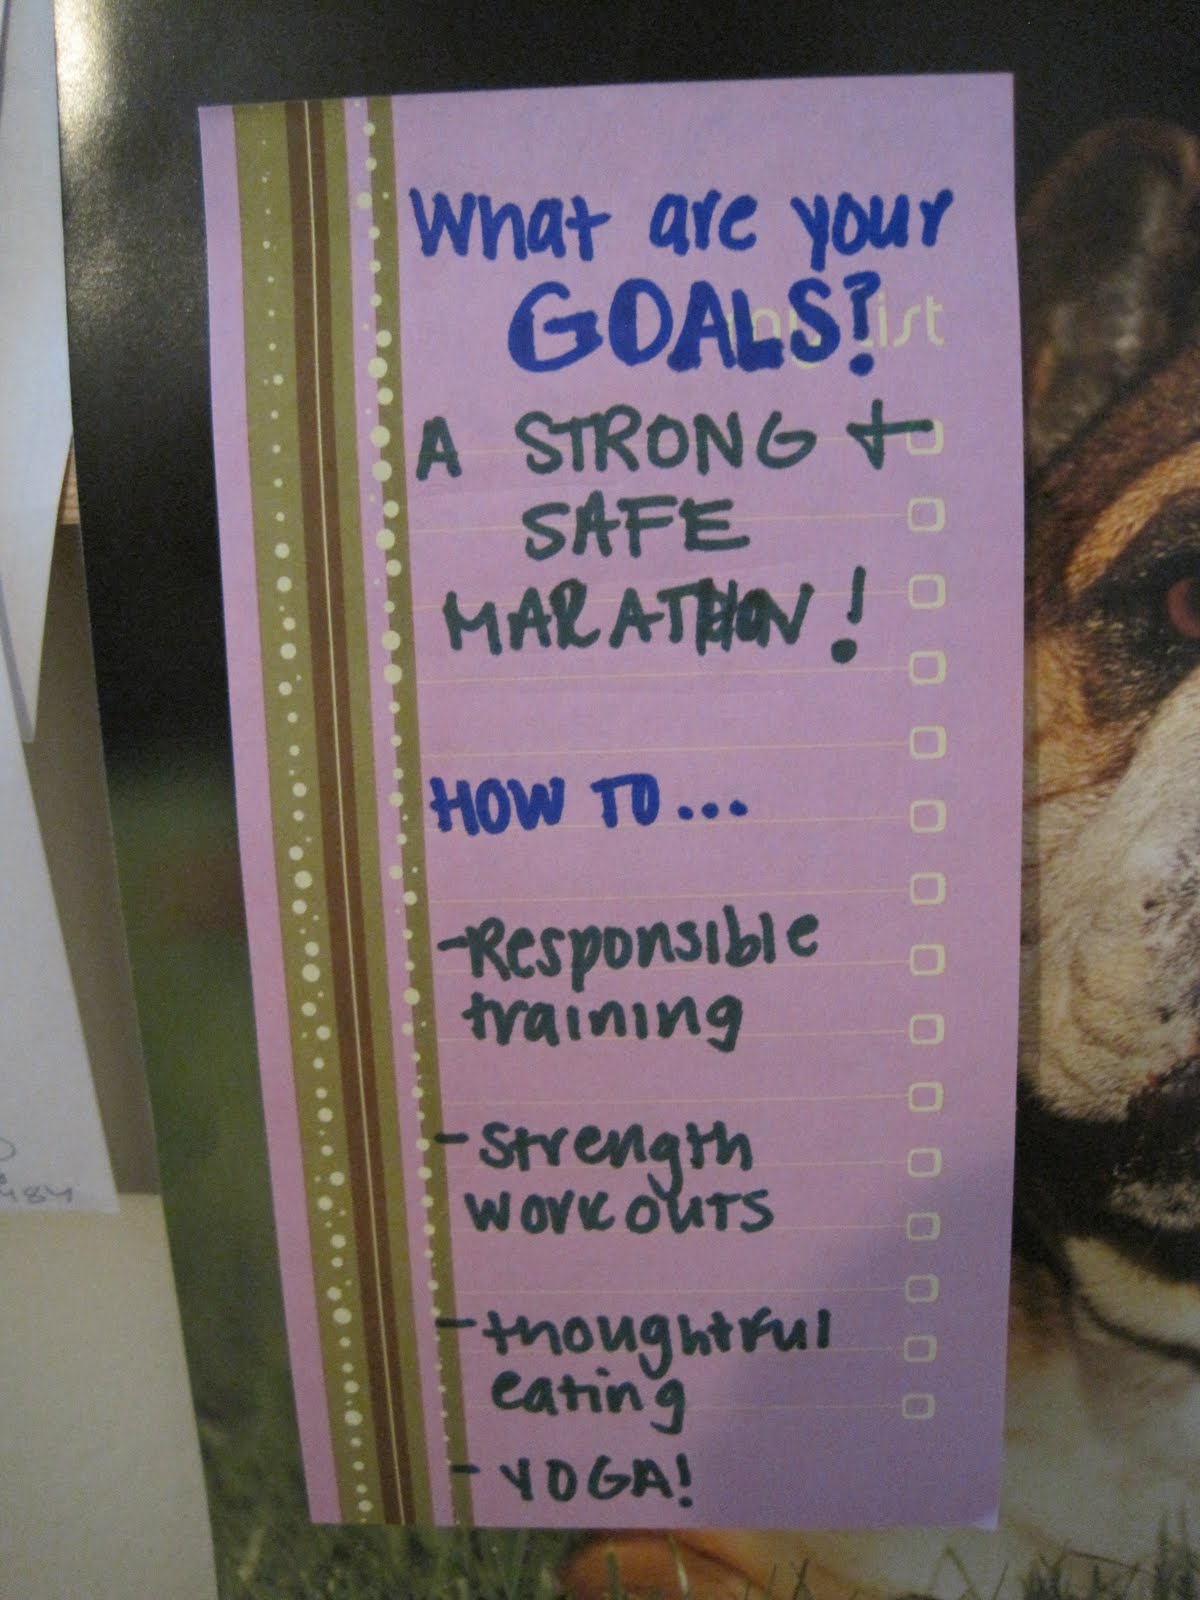 What are your
GOALS?
list
A STRONG +
SAFE
MARATHON!
HOW TO...
-Responsible
training
-Strength
WORKOUTS
-thoughtful
eating
-YOGA!